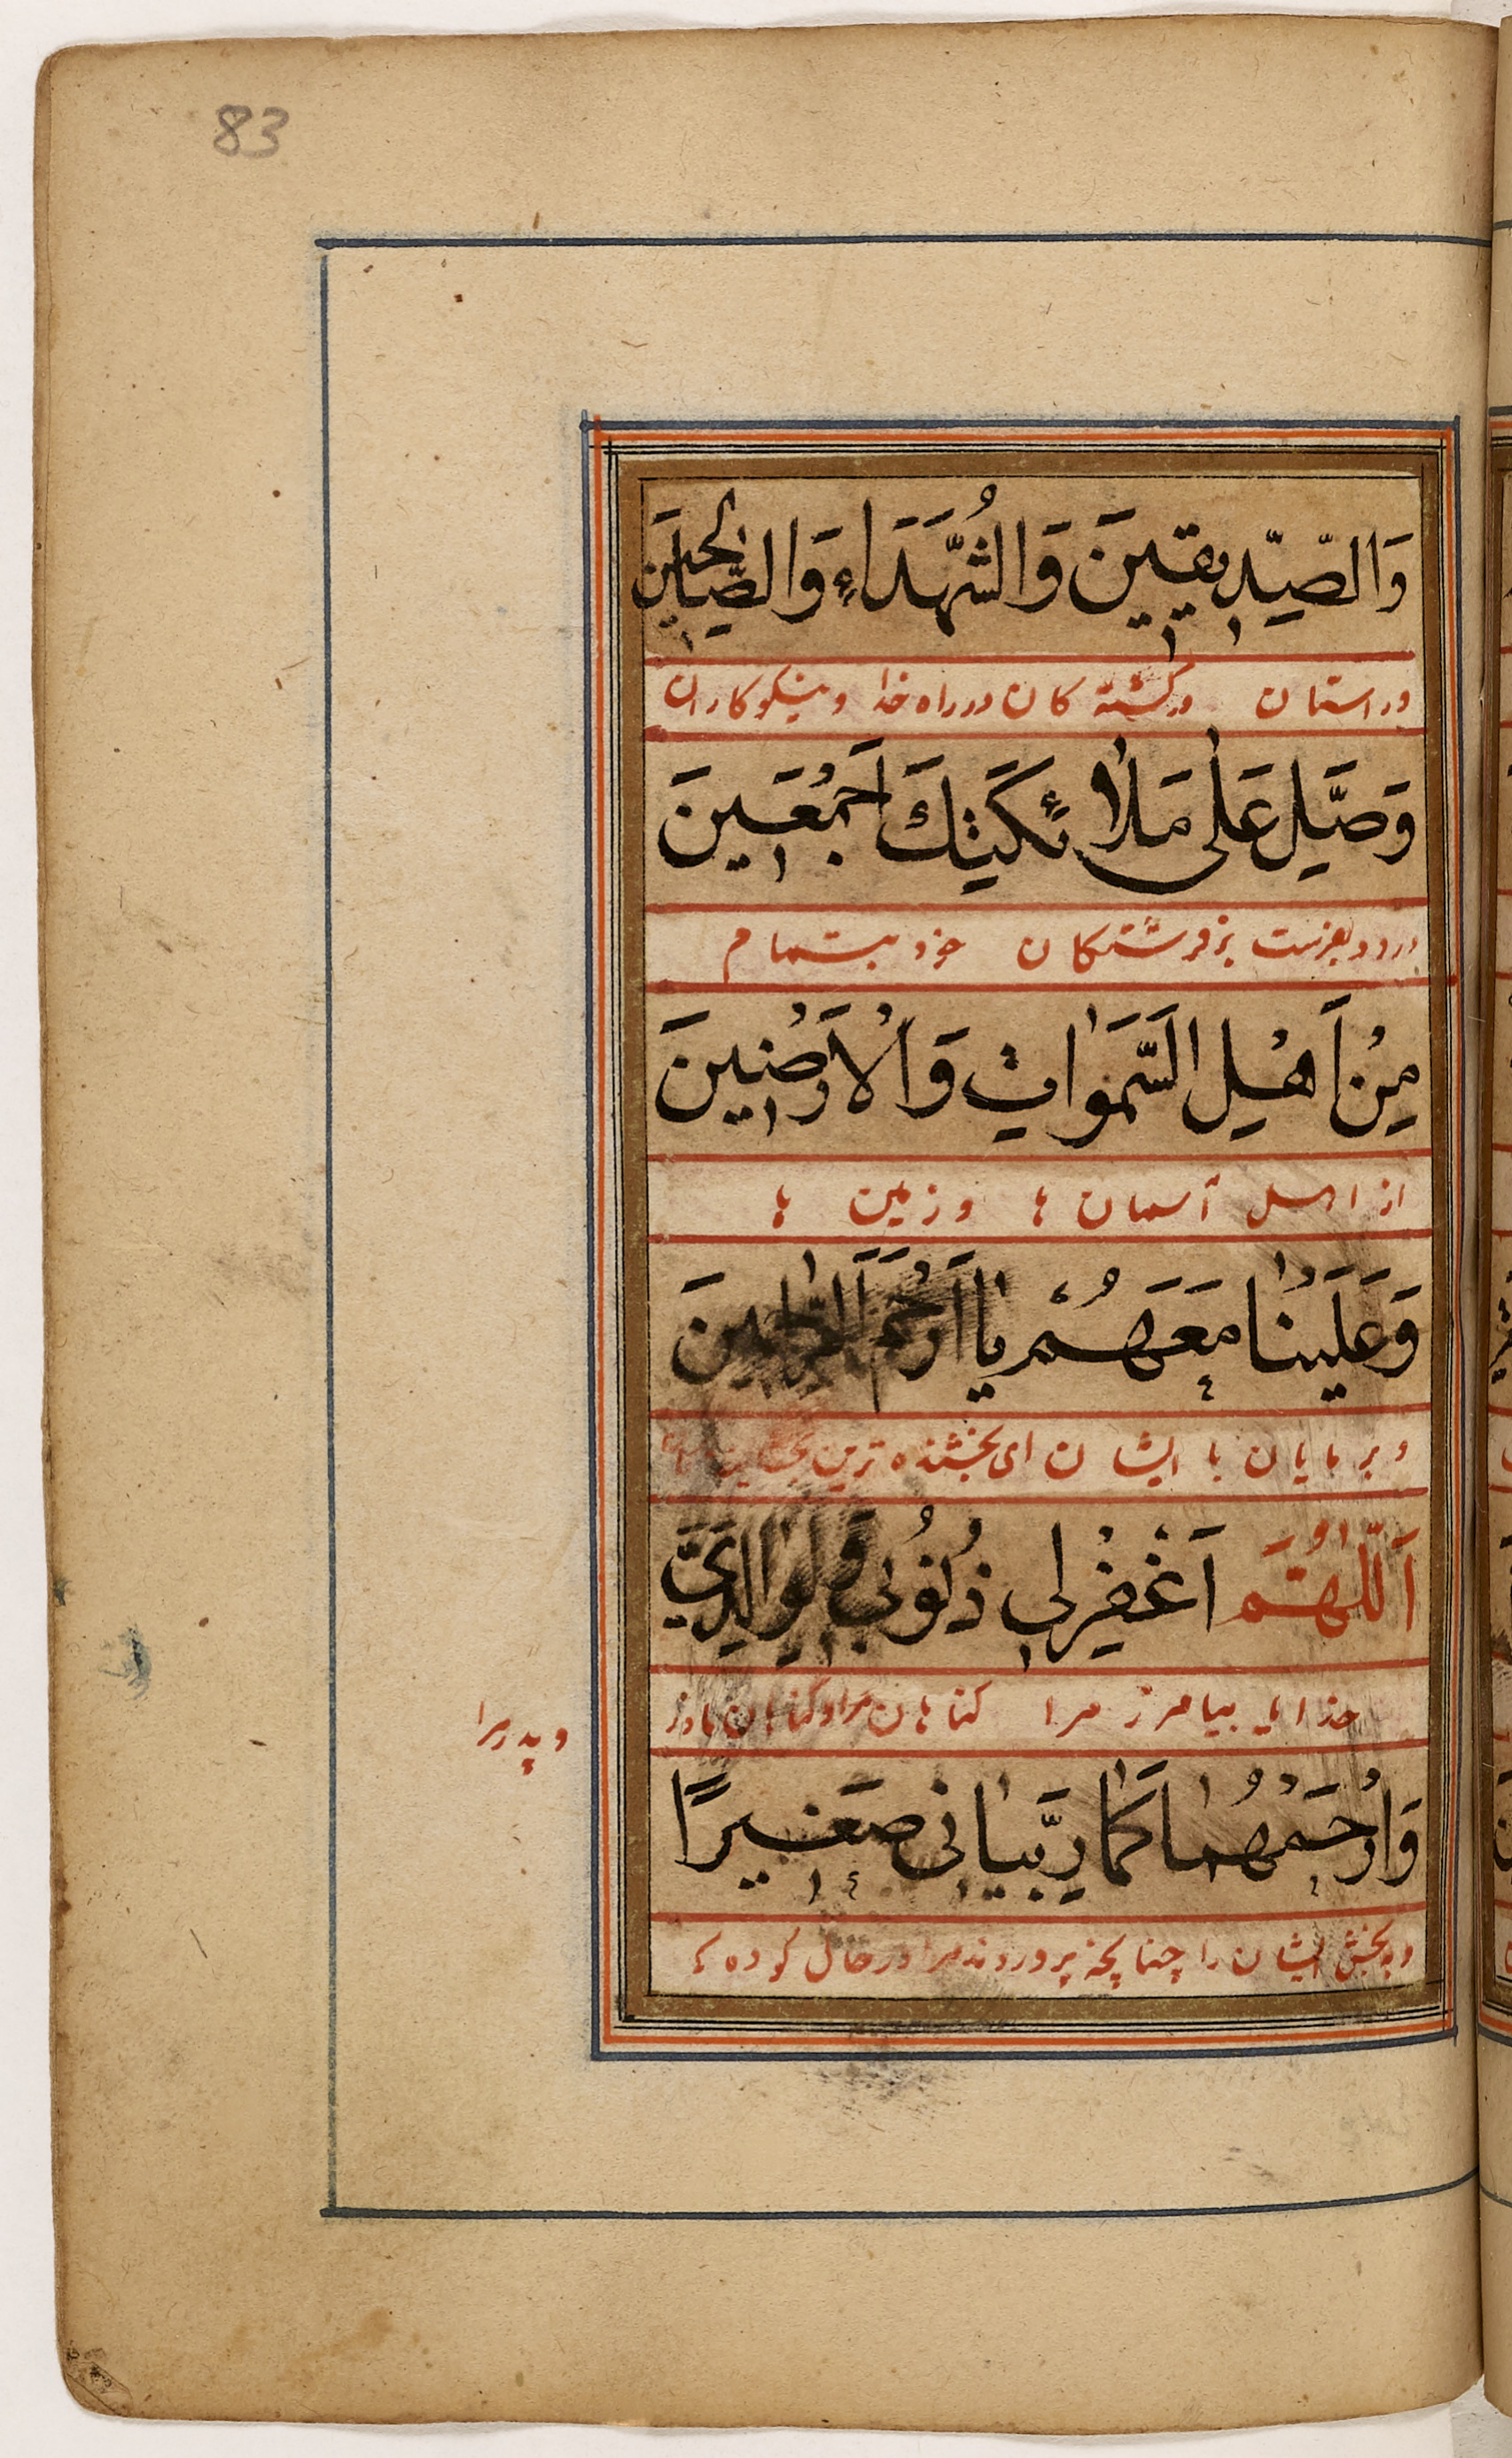 83
وَالصِّدِّيقِينَ وَالشُّهَدَاءِ وَالصَّالِحِينَ
و راستان و کشته کان در راه خدا و نیکوکاران
وَصَلِّ عَلَى مَلَائِكَتِكَ اَجْمَعِينَ
درود بفرست بر فرشتکان خود بتمام
مِنْ اَهْلِ السَّمَوَاتِ وَالْاَرَضِينَ
از اهل آسمان ها و زمین ها
وَعَلَيْنَا مَعَهُمْ يَا اَرْحَمَ الرَّاحِمِينَ
و بر مایان با ایشان ای بخشنده ترین
اَللّٰهُمَّ اَغْفِرْ لِي ذُنُوبِي وَلِوَالِدَيَّ
خدایا بیامرز مرا کناهان مرا و کناهان مادر
و پدر مرا
وَارْحَمْهُمَا كَمَا رَبَّيَانِي صَغِيرًا
و ببخش ایشان را چنانچه پروردند مرا در حال کودکی